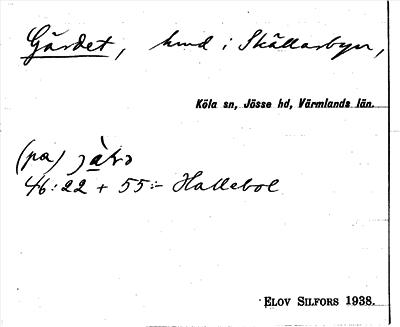 Gärdet, hmd i Skällarbyn,
Köla sn, Jösse hd, Värmlands län.
(på)
46:22 + 55:- Hallebol
ELOV SILFORS 1938.